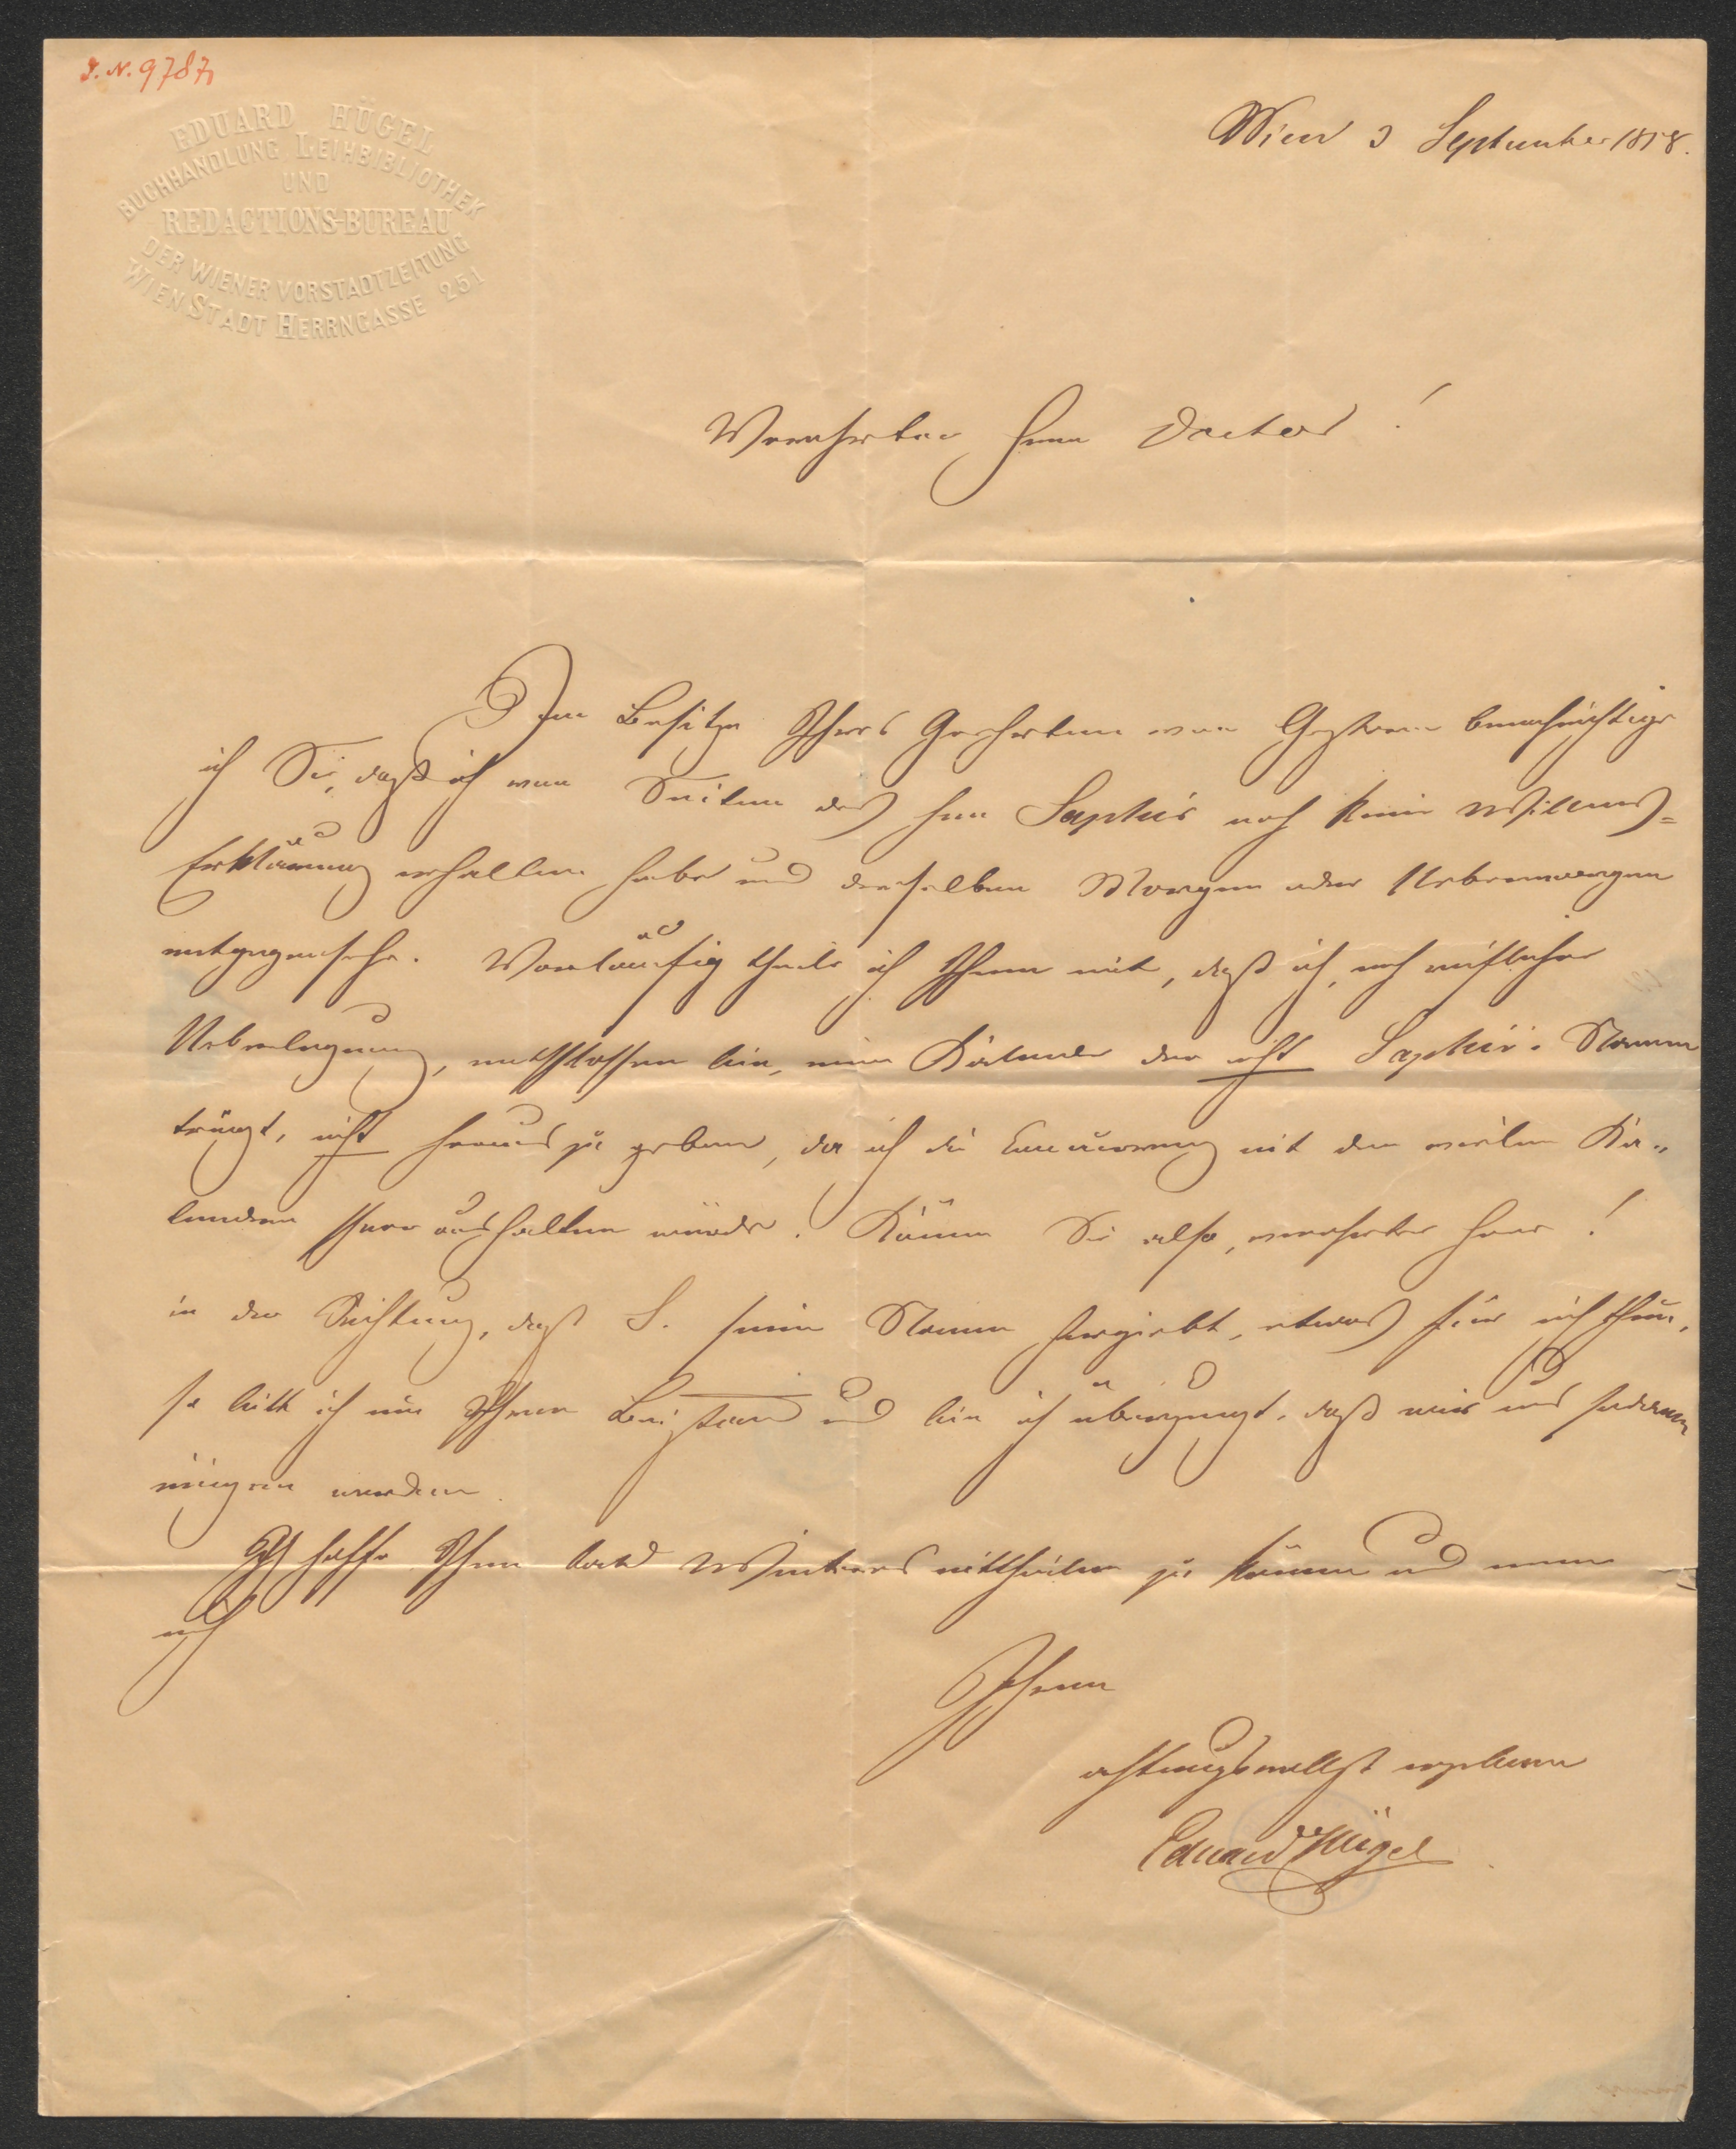 I. N. 97871
EDUARD HÜGEL
BUCHHANDLUNG LEIHBIBLIOTHEK
UND
REDACTIONS-BUREAU
DER WIENER VORSTADTZEITUNG
WIEN STADT HERRNGASSE 251
Wien 3 September 1858.
Verehrter Herr Doctor!
Im Besitze Ihres Geehrten von Gestern benachrichtige
ich Sie, daß ich von Seiten des Hrn Saphir noch keine Willens=
Erklärung erhalten habe und derselben Morgen oder Uebermorgen
entgegensehe. Vorläufig theile ich Ihnen mit, daß ich, nach reiflicher
Ueberlegung, entschlossen bin, einen Kalender der nicht Saphir's Namen
trägt, nicht heraus zu geben, da ich die Concurrenz mit den vielen Ka„
lendern schwer aushalten würde. Können Sie also, verehrter Herr!
in der Richtung, daß S. seinen Namen hergiebt, etwas für mich thun,
so bitte ich um Ihren Beistand und bin ich überzeugt, daß wir uns
einigen werden.
Ich hoffe Ihnen bald Weiteres mittheilen zu können und nenne
mich
Ihren
achtungsvollst ergebenen
Eduard Hügel